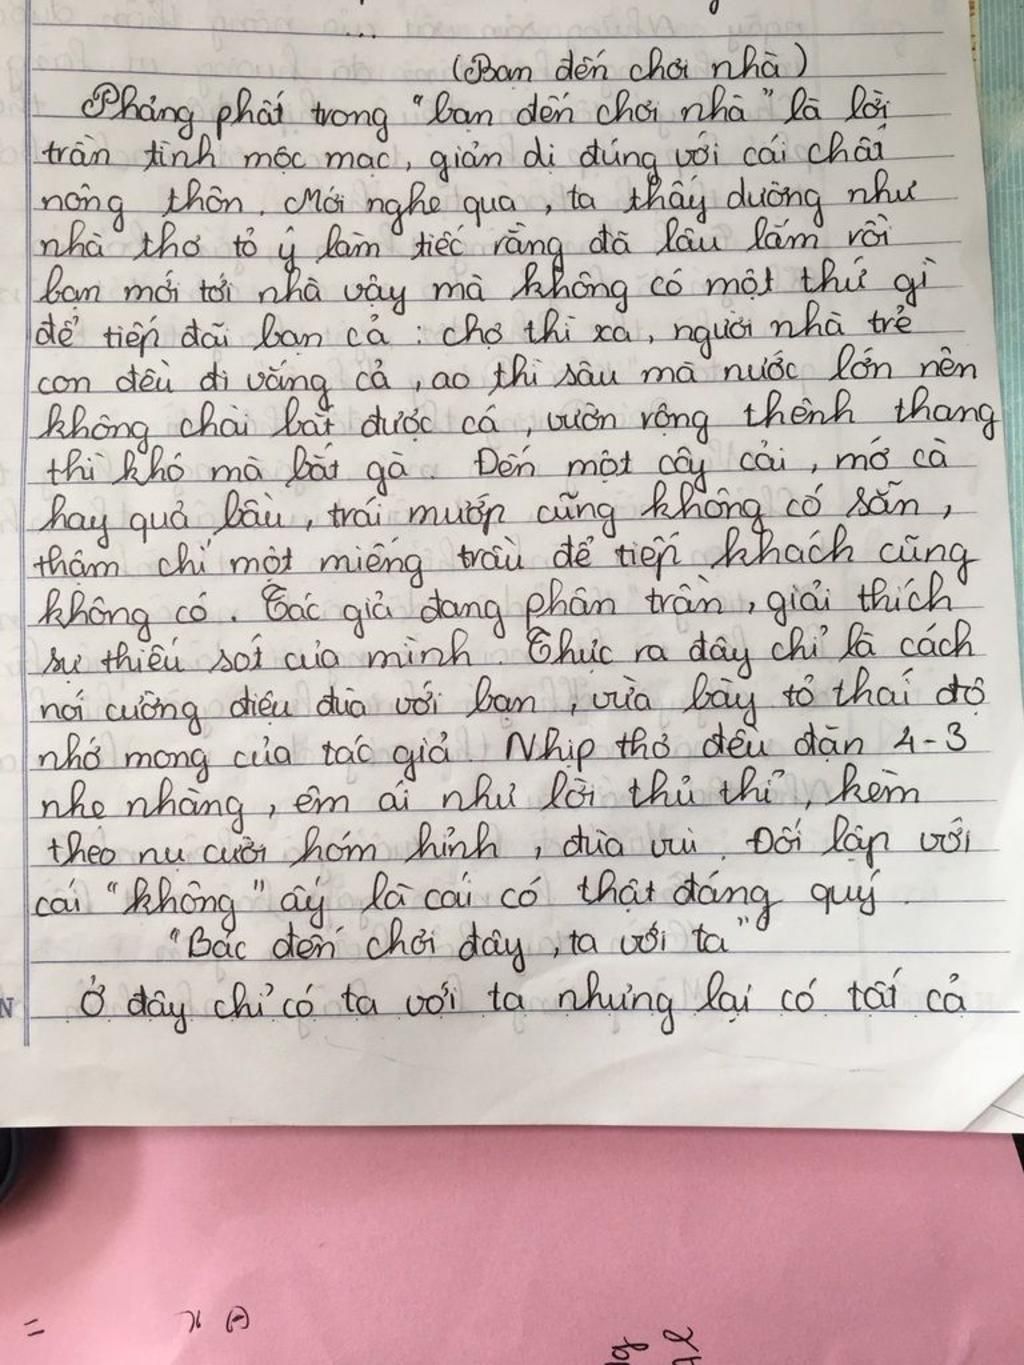 (Bạn đến chơi nhà)
Phảng phất trong "bạn đến chơi nhà" là lời
trần tình mộc mạc, giản dị đúng với cái chất
nông thôn. Mới nghe qua, ta thấy dường như
nhà thơ tỏ ý làm tiếc rằng đã lâu lắm rồi
bạn mới tới nhà vậy mà không có một thứ gì
để tiếp đãi bạn cả : chợ thì xa, người nhà trẻ
con đều đi vắng cả, ao thì sâu mà nước lớn nên
không chài bắt được cá, vườn rộng thênh thang
thì khó mà bắt gà. Đến một cây cải, mớ cà
hay quả bầu, trái mướp cũng không có sẵn,
thậm chí một miếng trầu để tiếp khách cũng
không có. Tác giả đang phân trần, giải thích
sự thiếu sót của mình. Thực ra đây chỉ là cách
nói cường điệu đùa với bạn, vừa bày tỏ thái độ
nhớ mong của tác giả. Nhịp thơ đều đặn 4-3
nhẹ nhàng, êm ái như lời thủ thỉ, kèm
theo nụ cười hóm hỉnh, đùa vui. Đối lập với
cái "không" ấy là cái có thật đáng quý.
"Bác đến chơi đây, ta với ta"
Ở đây chỉ có ta với ta nhưng lại có tất cả
N
=